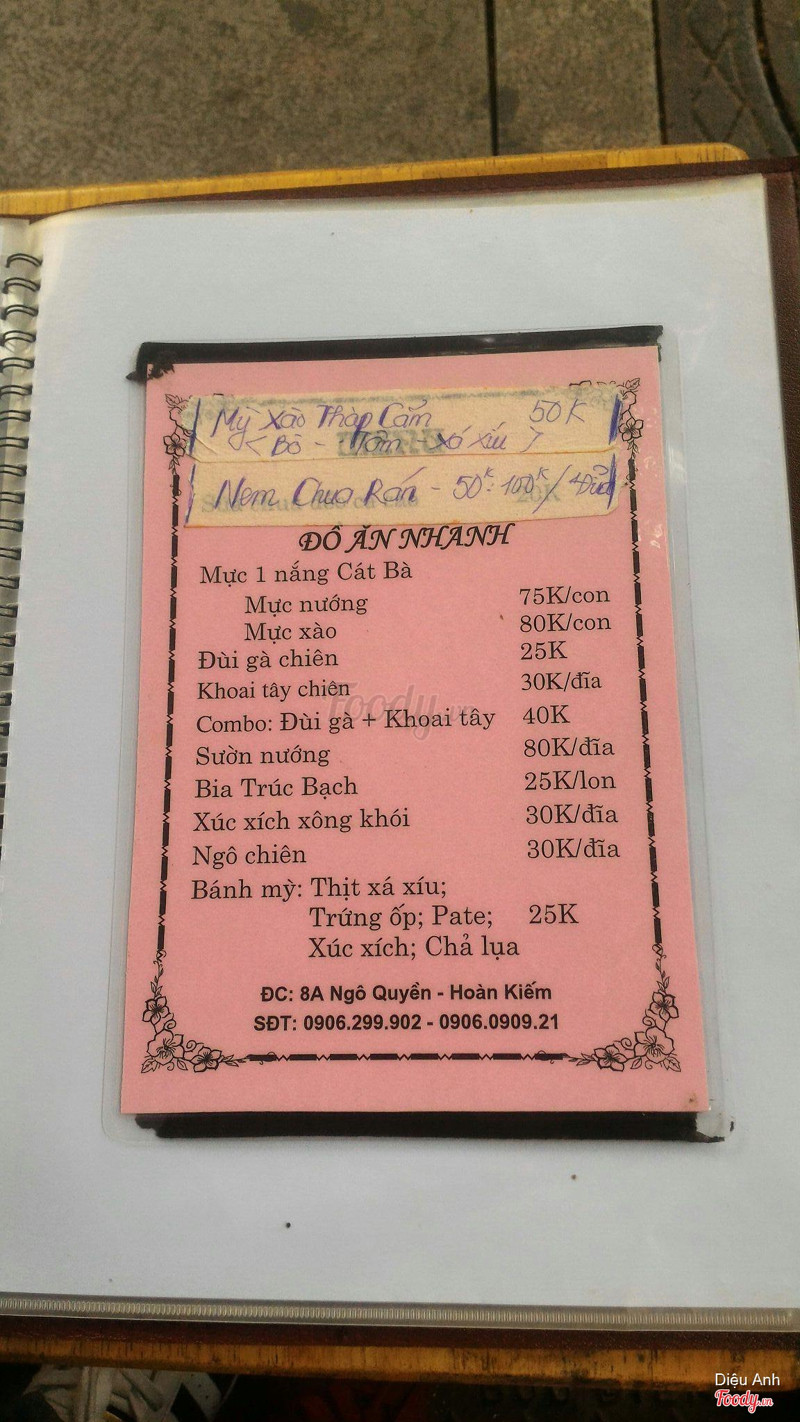 Mỳ Xào Thập Cẩm 50K
< Bò - Tôm - Xá Xíu >
Nem Chua Rán - 50K - 100K / Đĩa
20K
ĐỒ ĂN NHANH
Mực 1 nắng Cát Bà
Mực nướng 75K/con
Mực xào 80K/con
Đùi gà chiên 25K
Khoai tây chiên 30K/đĩa
Combo: Đùi gà + Khoai tây 40K
Sườn nướng 80K/đĩa
Bia Trúc Bạch 25K/lon
Xúc xích xông khói 30K/đĩa
Ngô chiên 30K/đĩa
Bánh mỳ: Thịt xá xíu;
Trứng ốp; Pate; 25K
Xúc xích; Chả lụa
ĐC: 8A Ngô Quyền - Hoàn Kiếm
SĐT: 0906.299.902 - 0906.0909.21
Foody.vn
Diệu Anh
Foody.vn